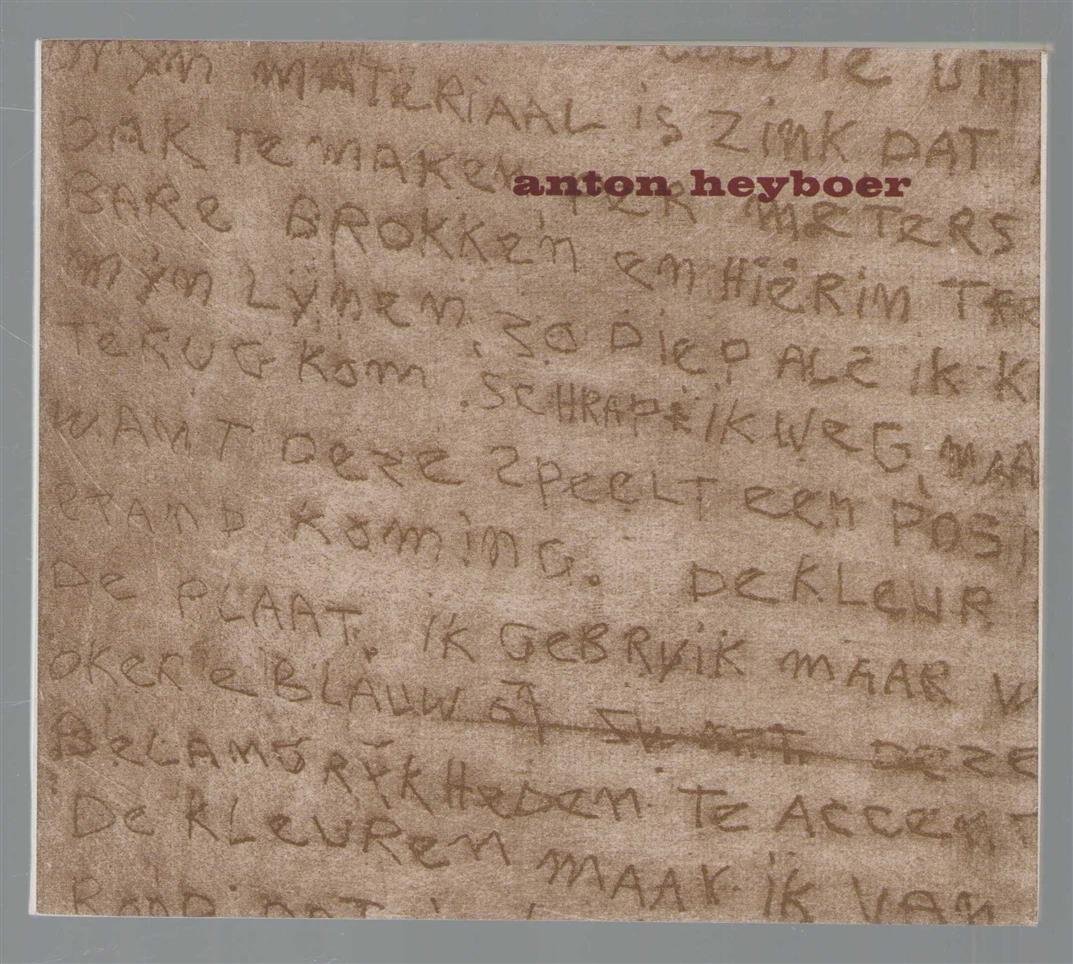 UIT
MyN MATERIAAL is ZiNK DAT
DAK Te MAKEN
anton heyboer
BARe BROKKeN METeRS
eN HieRiN
MyN LyNeN ZO DieP ALS IK
TeRUG KOM . SCHRAP IK WeG MAA
WANT DeZe SPeeLT eeN POSi
STAND KOMiNG. De KLeUR
De PLAAT. IK GeBRyiK MAAR
OKeR e BLAUW OF ZWART DeZe
BeLANGRyKHeDeN Te ACCeNT
De KLeUReN MAAK iK VAN